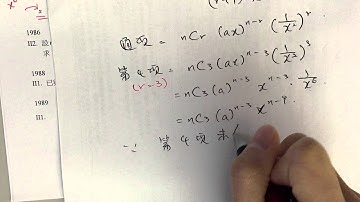 1986
III. 設
求
1988
III. 已
1989
III.
通項 = nCr (ax)^{n-r} (1/x²)^r
第4項 = nC3 (ax)^{n-3} (1/x²)^3
(r=3) = nC3 (a)^{n-3} x^{n-3} · 1/x^6
= nC3 (a)^{n-3} x^{n-9}
∵ 第4項